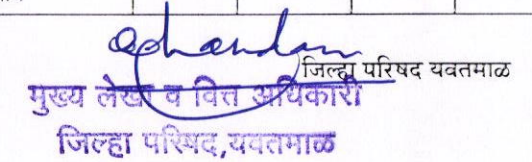 जिल्हा परिषद यवतमाळ
मुख्य लेखा व वित्त अधिकारी
जिल्हा परिषद,यवतमाळ